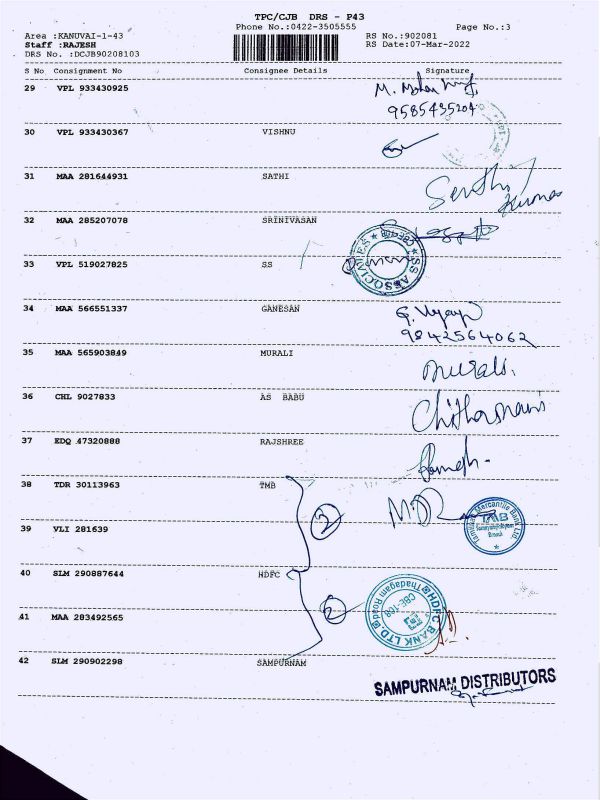 TPC/CJB DRS - P43
Phone No.:0422-3505555
Page No.:3
Area :KANUVAI-1-43
RS No.:902081
Staff :RAJESH
RS Date:07-Mar-2022
DRS No. :DCJB90208103
S No Consignment No Consignee Details Signature
29 VPL 933430925 M. Mohan
9585435204
30 VPL 933430367 VISHNU
31 MAA 281644931 SATHI Senthil
Kumar
32 MAA 285207078 SRINIVASAN
33 VPL 519027825 SS
★ SS ASSOCIATES ★ CBE-108
34 MAA 566551337 GANESAN G. Vijaya
9842564062
35 MAA 565903849 MURALI Murali.
36 CHL 9027833 AS BABU
37 EDQ 47320888 RAJSHREE
38 TDR 30113963 TMB
2
Mercantile Bank Ltd
TMB
Branch
39 VLI 281639
40 SLM 290887644 HDFC
2
HDFC BANK LTD. Thadagam Road
CBE-108
41 MAA 283492565
42 SLM 290902298 SAMPURNAM
SAMPURNAM DISTRIBUTORS